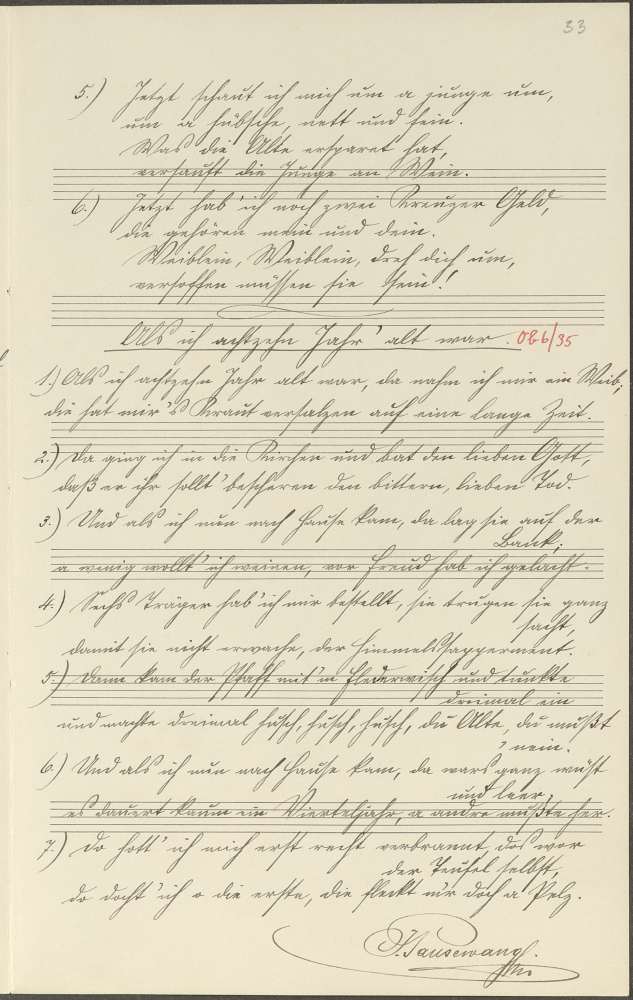 33
5.) Jetzt schaut ich mich um a junge um,
um a hübsche, nett und fein.
Was die Alte ersparet hat,
versauft die Junge an Wein.
6.) Jetzt hab' ich noch zwei Kreuzer Geld,
die gehören mein und dein.
Weiblein, Weiblein, dreh dich um,
versoffen müssen sie sein!
Als ich achtzehn Jahr' alt war. Ob6/35
1.) Als ich achtzehn Jahr alt war, da nahm ich mir ein Weib;
die hat mir's Kraut versalzen auf eine lange Zeit.
2.) Da ging ich in die Kirchen und bat den lieben Gott,
daß er ihr sollt' bescheren den bittern, lieben Tod.
3.) Und als ich nun nach Hause kam, da lag sie auf der
Bank;
a wenig wollt' ich weinen, vor Freud hab ich gelacht.
4.) Sechs Träger hab' ich mir bestellt, sie trugen sie ganz
sacht,
damit sie nicht erwache, der Himmelssapperment.
5.) Dann kam der Pfaff mit'm Flederwisch und tunkte
dreimal ein
und machte dreimal husch, husch, husch, du Alte, du mußt
'nein.
6.) Und als ich nun nach Hause kam, da wars ganz wüst
und leer,
es dauert kaum ein Vierteljahr, a andre mußte her.
7.) Do hott' ich mich erst recht verbrannt, das wor
der Teufel selbst,
do docht' ich o die erste, die fleckt mir doch a Pelz.
J. Pausewang